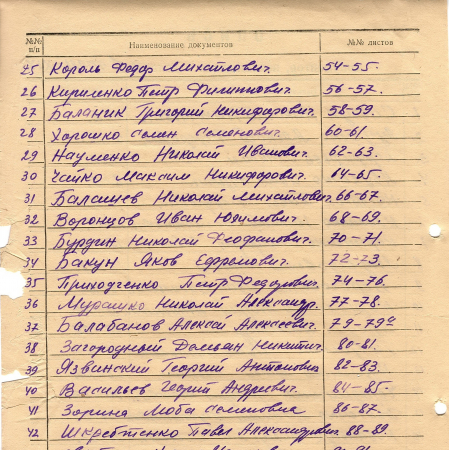 №№ п/п Наименование документов №№ листов
25 Король Федор Михайлович. 54-55.
26 Кириленко Петр Филиппович. 56-57.
27 Баланик Григорий Никифорович. 58-59.
28 Хорошко Семен Семенович. 60-61.
29 Науменко Николай Иванович. 62-63.
30 Чайко Максим Никифорович. 64-65.
31 Балашев Николай Михайлович 66-67.
32 Воронцов Иван Юхимович. 68-69.
33 Бурдин Николай Феофанович. 70-71.
34 Бакун Яков Ефремович. 72-73.
35 Приходченко Петр Федорович. 74-76.
36 Мурашко Николай Александр. 77-78.
37 Балабанов Алексей Алексеевич. 79-79а
38 Загородный Демьян Никитич. 80-81.
39 Язвинский Георгий Антонович 82-83.
40 Васильев Георгий Андреевич. 84-85.
41 Зорина Люба Семеновна 86-87.
42 Шкребтенко Павел Александрович. 88-89.